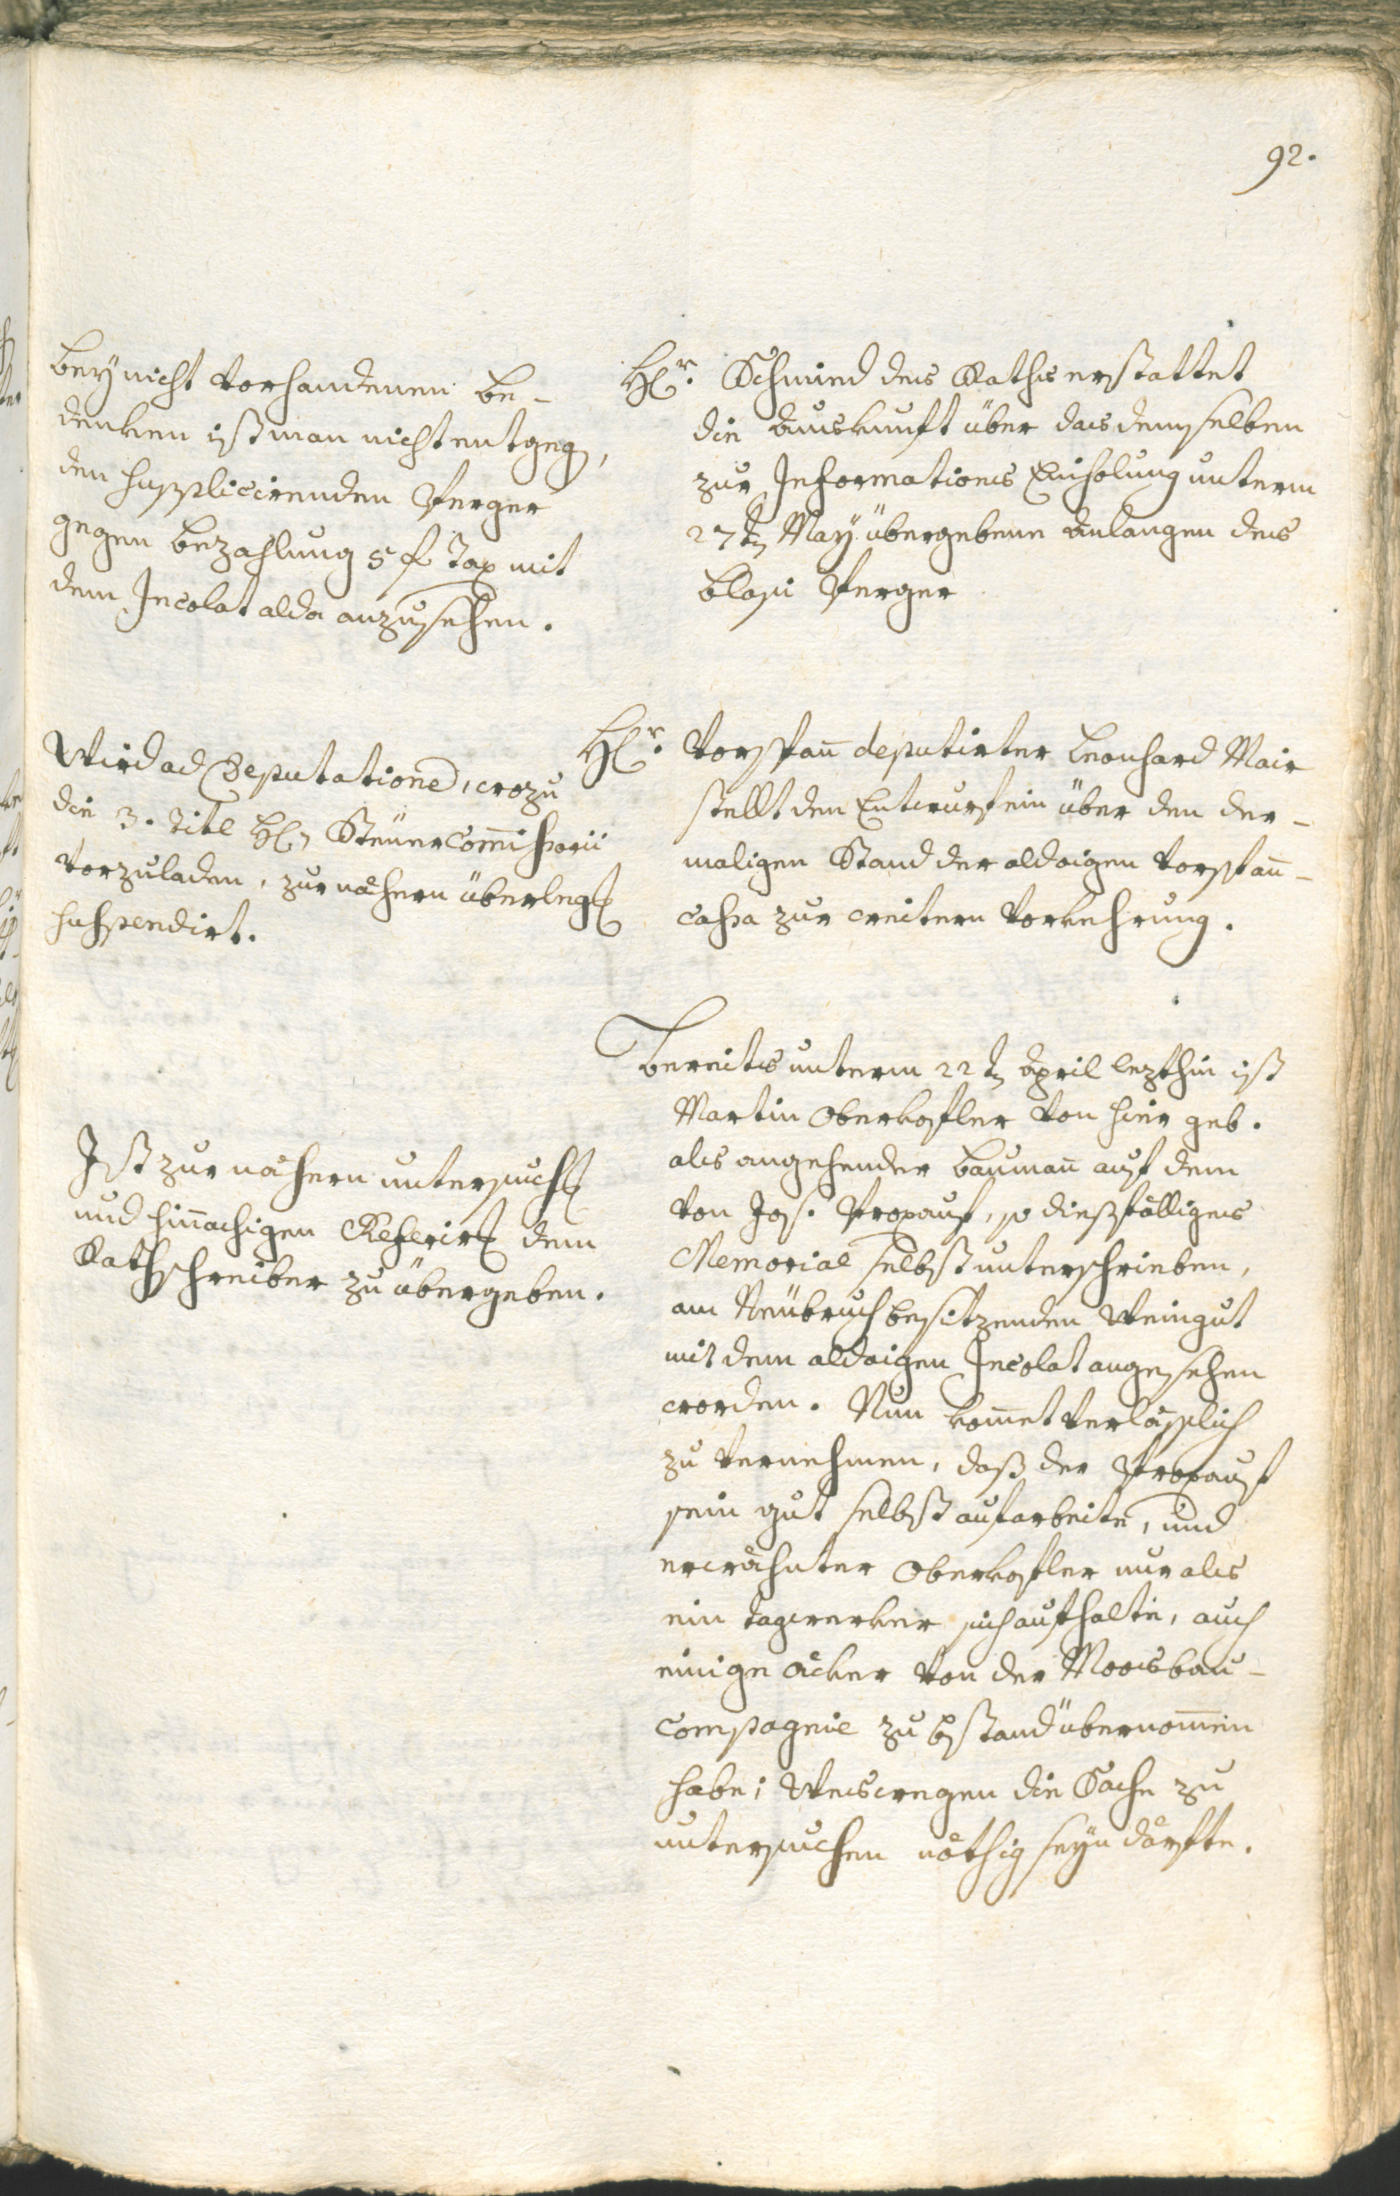 92.
Bey nicht vorhandenen be-
denken ist man nicht entgeg,
den supplicirenden Perger
gegen bezahlung 5 f Tax mit
dem Incolat alda anzusehen.
Hr. Schmied des Raths erstattet
die Auskunft über das demselben
zur Informations Einholung unterm
27t May übergebene Anlangen des
Blasi Perger
Wird ad Deputationē, wozu
die 3. Titl H. Steüer Com̄issarii
vorzuladen, zur nähern überlegg
suspendirt.
Hr. Vorspan̄ deputirter Leonhard Mair
stellt den Entwurf ein über den der-
maligen Stand der aldaigen Vorspan̄-
cassa zur weitern Vorkehrung.
Ist zur nähern untersuchg
und hinnachigen Referirg dem
Rathschreiber zu übergeben.
Bereits unterm 22t April lezthin ist
Martin Oberkofler von hier geb.
als angehender Bauman̄ auf dem
von Jos. Propauf, so dießfälliges
Memorial selbst unterschrieben,
am Neübruch besitzenden Weingut
mit dem aldaigen Incolat angesehen
worden. Nun kom̄et verläßlich
zu vernehmen, daß der Propauf
sein gut selbst aufarbeite, und
erwähnter Oberkofler nur als
ein tagwerker sich aufhalte, auch
einige äcker von der Moosbau-
compagnie zu bstand übernom̄en
habe; Weswegen die Sache zu
untersuchen nöthig seyn dörfte.